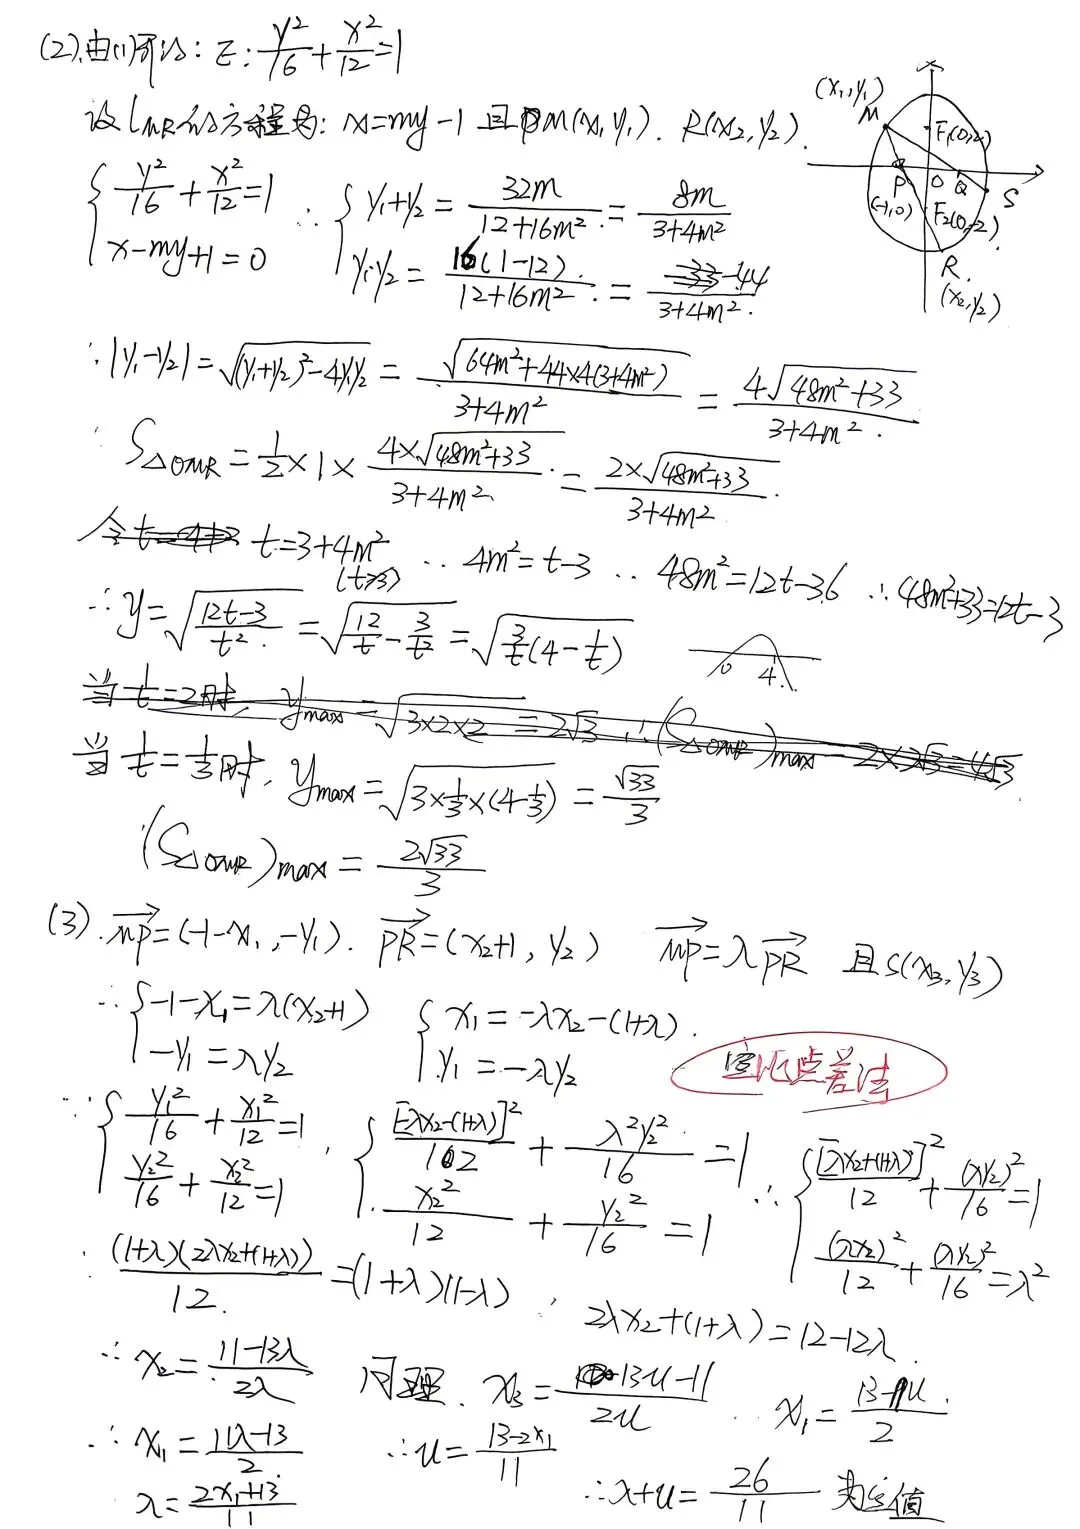 (2).由(1)可得: E: y²/16 + x²/12 = 1
设 l_MR 的方程为: x=my-1 且 M(x₁,y₁). R(x₂,y₂).
(x₁,y₁)
M
F₁(0,2)
P O Q S
(-1,0) F₂(0,-2)
R
(x₂,y₂)
{ y²/16 + x²/12 = 1
x-my+1=0
∴ { y₁+y₂ = 32m/(12+16m²) = 8m/(3+4m²)
y₁·y₂ = 16(1-12)/(12+16m²) = -44/(3+4m²)
∴ |y₁-y₂| = √((y₁+y₂)²-4y₁y₂) = √(64m²+44×4(3+4m²))/(3+4m²) = 4√(48m²+33)/(3+4m²)
∴ S△OMR = 1/2 ×1× 4×√(48m²+33)/(3+4m²) = 2×√(48m²+33)/(3+4m²)
令 t=3+4m² ∴ 4m²=t-3 ∴ 48m²=12t-36 ∴ 48m²+33=12t-3
(t≥3)
∴ y=√((12t-3)/t²) = √(12/t - 3/t²) = √(3/t(4-1/t))
0 4
当 1/t=2时, y_max=√(3×2×2)=2√3 ∴(S△OMR)max=2×2√3=4√3
当 1/t=1/3时, y_max=√(3×1/3×(4-1/3)) = √33/3
(S△OMR)max = 2√33/3
(3). MP→=(-1-x₁,-y₁). PR→=(x₂+1, y₂) MP→=λPR→ 且S(x₃,y₃)
∴ { -1-x₁=λ(x₂+1)
-y₁=λy₂
{ x₁=-λx₂-(1+λ).
y₁=-λy₂
定比点差法
∵ { y₁²/16 + x₁²/12 = 1
y₂²/16 + x₂²/12 = 1
, { [-λx₂-(1+λ)]²/12 + λ²y₂²/16 = 1
x₂²/12 + y₂²/16 = 1
∴ { [λx₂+(1+λ)]²/12 + (λy₂)²/16 = 1
(λx₂)²/12 + (λy₂)²/16 = λ²
∴ (1+λ)(2λx₂+(1+λ))/12 = (1+λ)(1-λ) ∴ 2λx₂+(1+λ)=12-12λ
∴ x₂ = (11-13λ)/2λ 同理. x₃ = (13u-11)/2u x₁ = (13-11u)/2
∴ x₁ = (11λ-13)/2 ∴ u = (13-2x₁)/11
λ = (2x₁+13)/11 ∴ λ+u = 26/11 为定值